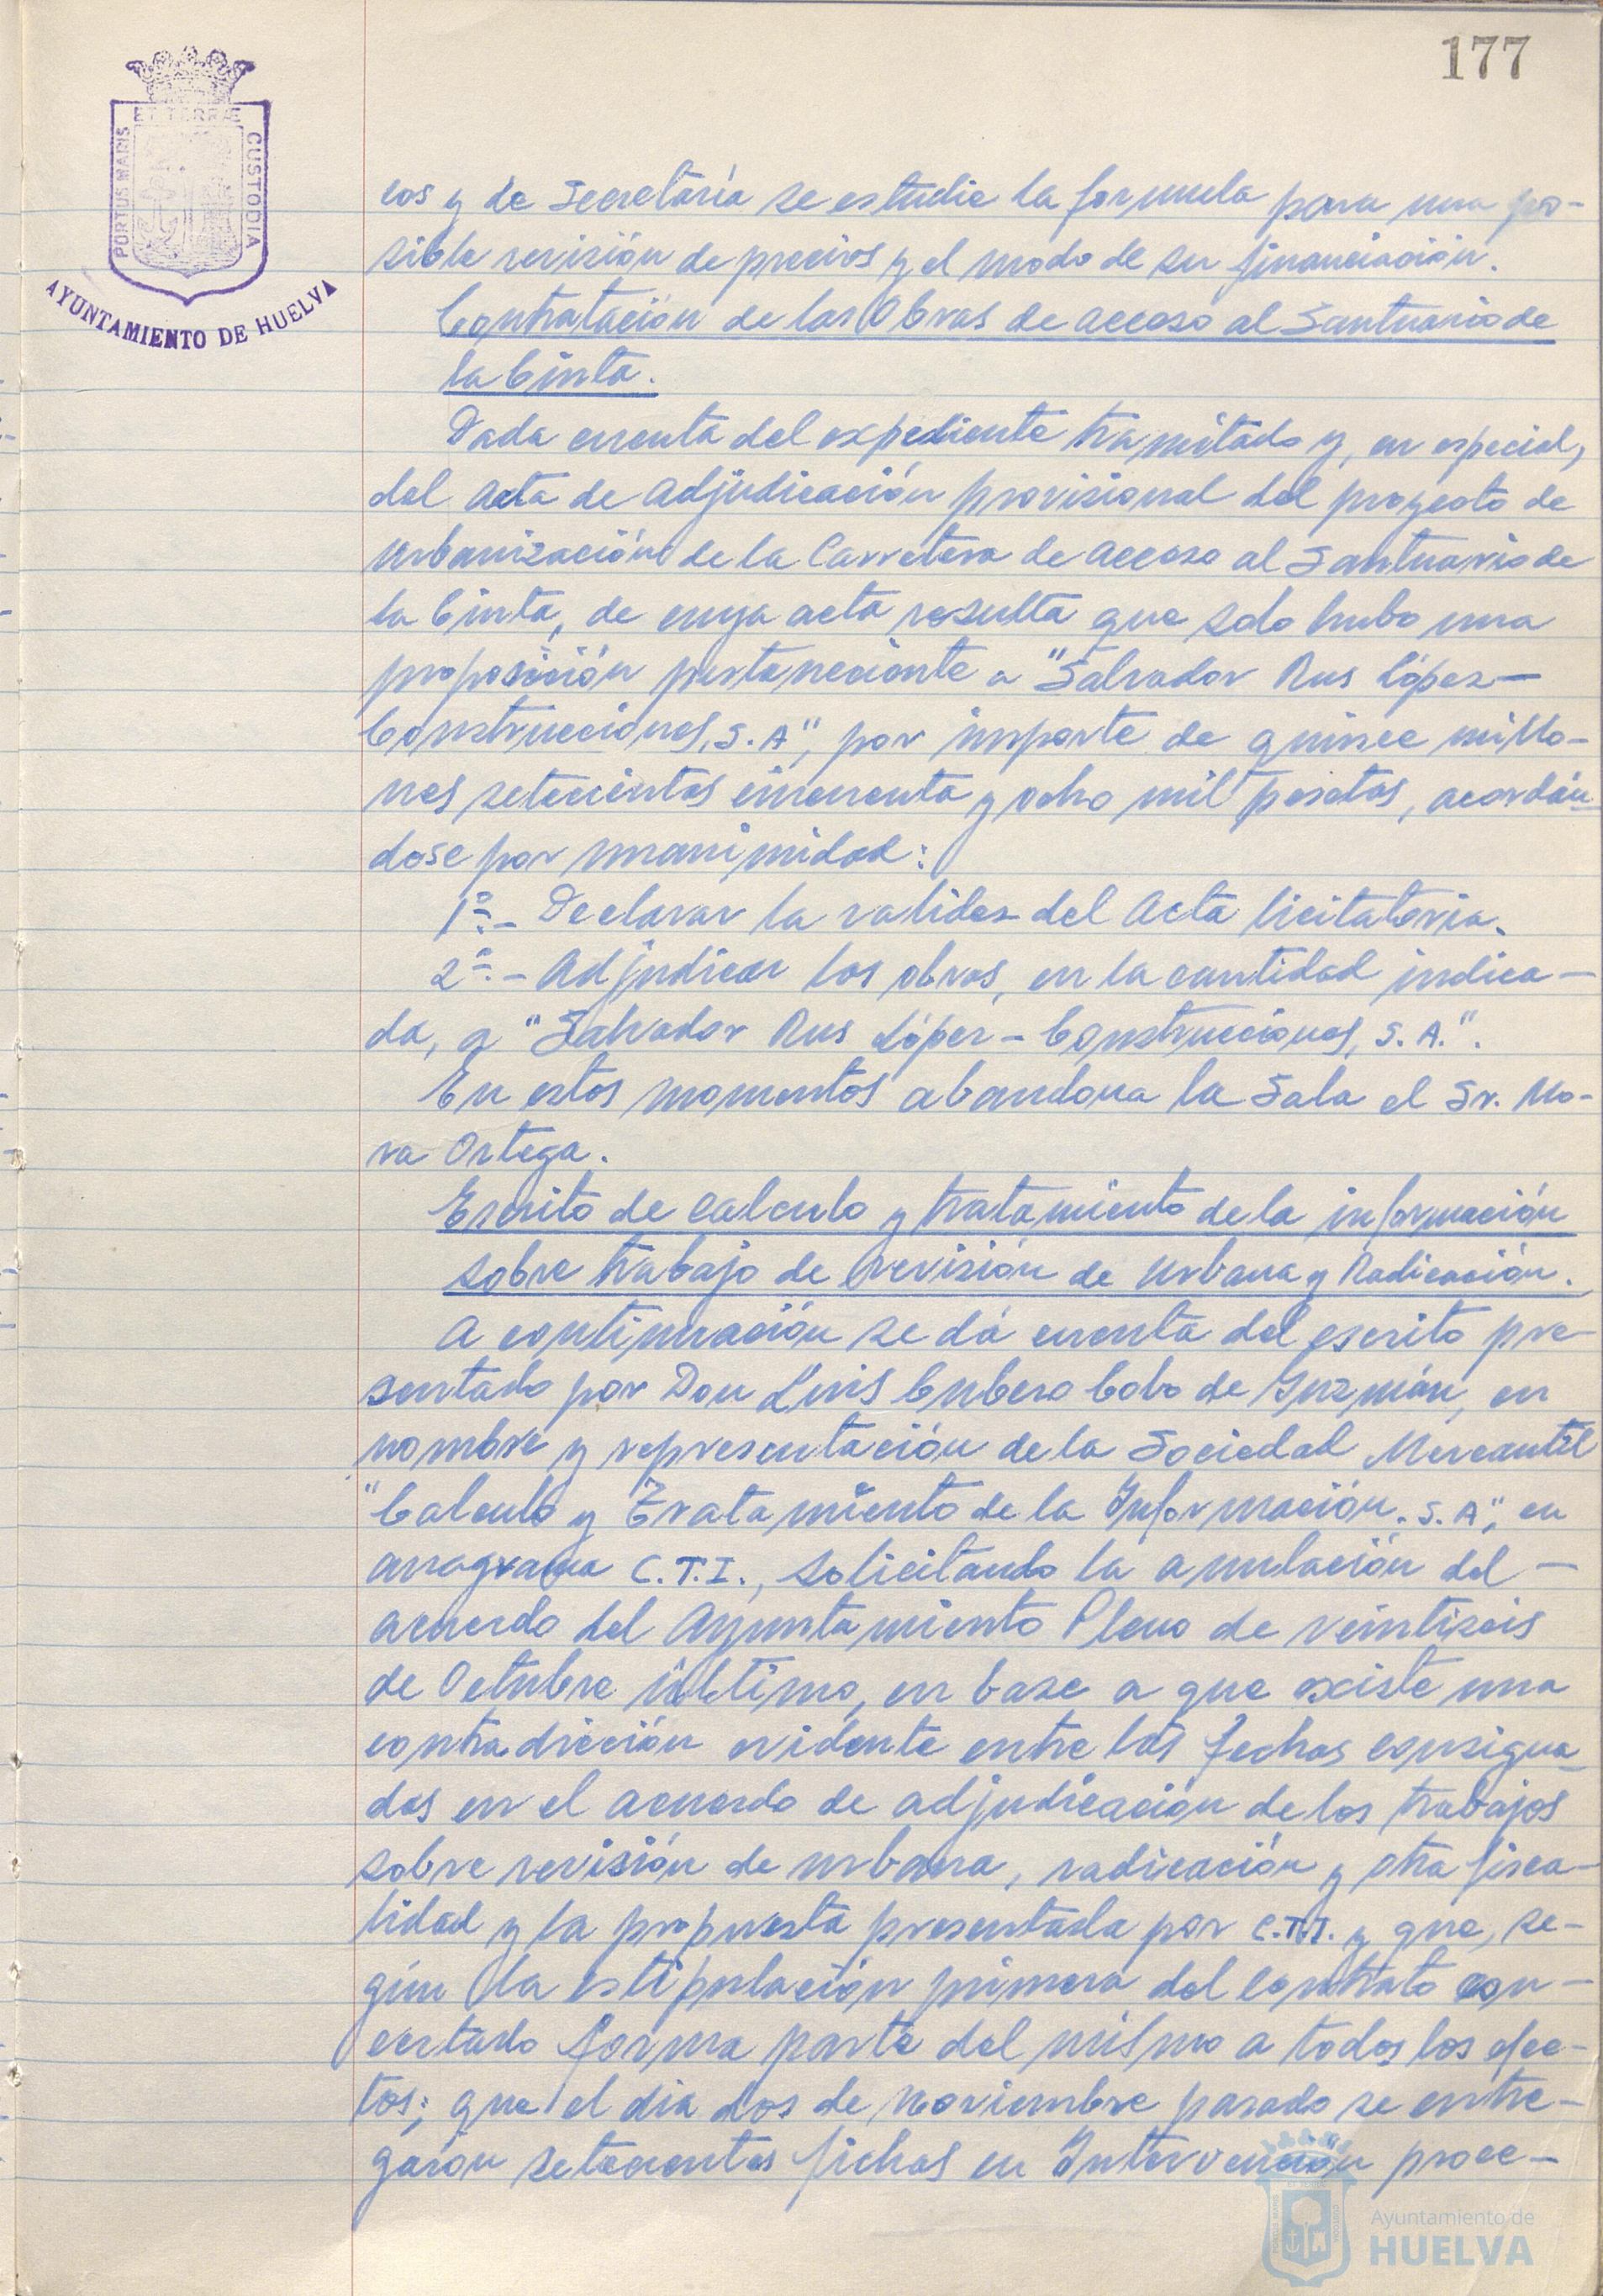 177
PORTUS MARIS
ET TERRÆ
CUSTODIA
AYUNTAMIENTO DE HUELVA
cos y de Secretaría se estudie la formula para una po-
sible revisión de precios y el modo de su financiación.
Contratación de las Obras de acceso al Santuario de
la Cinta.
Dada cuenta del expediente tramitado y, en especial,
del acta de adjudicación provisional del proyecto de
urbanización de la Carretera de acceso al Santuario de
la Cinta, de cuya acta resulta que solo hubo una
proposición perteneciente a "Salvador Rus López-
Construcciones, S.A", por importe de quince millo-
nes setecientos cincuenta y ocho mil pesetas, acordán-
dose por unanimidad:
1º.- Declarar la validez del Acta licitatoria.
2º.- Adjudicar las obras, en la cantidad indica-
da, a "Salvador Rus López-Construcciones, S.A.".
En estos momentos abandona la Sala el Sr. Mo-
ra Ortega.
Escrito de Calculo y tratamiento de la información
sobre trabajo de revisión de Urbana y Radicación.
A continuación se dá cuenta del escrito pre-
sentado por Don Luis Cubero Cobo de Guzmán, en
nombre y representación de la Sociedad Mercantil
"Calculo y Tratamiento de la Información. S.A", en
anagrama C.T.I., solicitando la anulación del -
acuerdo del Ayuntamiento Pleno de veintiseis
de Octubre último, en base a que existe una
contradicción evidente entre las fechas consigna-
das en el acuerdo de adjudicación de los trabajos
sobre revisión de urbana, radicación y otra fisca-
lidad y la propuesta presentada por C.T.I. y que, se-
gún la estipulación primera del contrato con-
certado forma parte del mismo a todos los efec-
tos; que el dia dos de Noviembre pasado se entre-
garon setecientas fichas en Intervención proce-
Ayuntamiento de
HUELVA